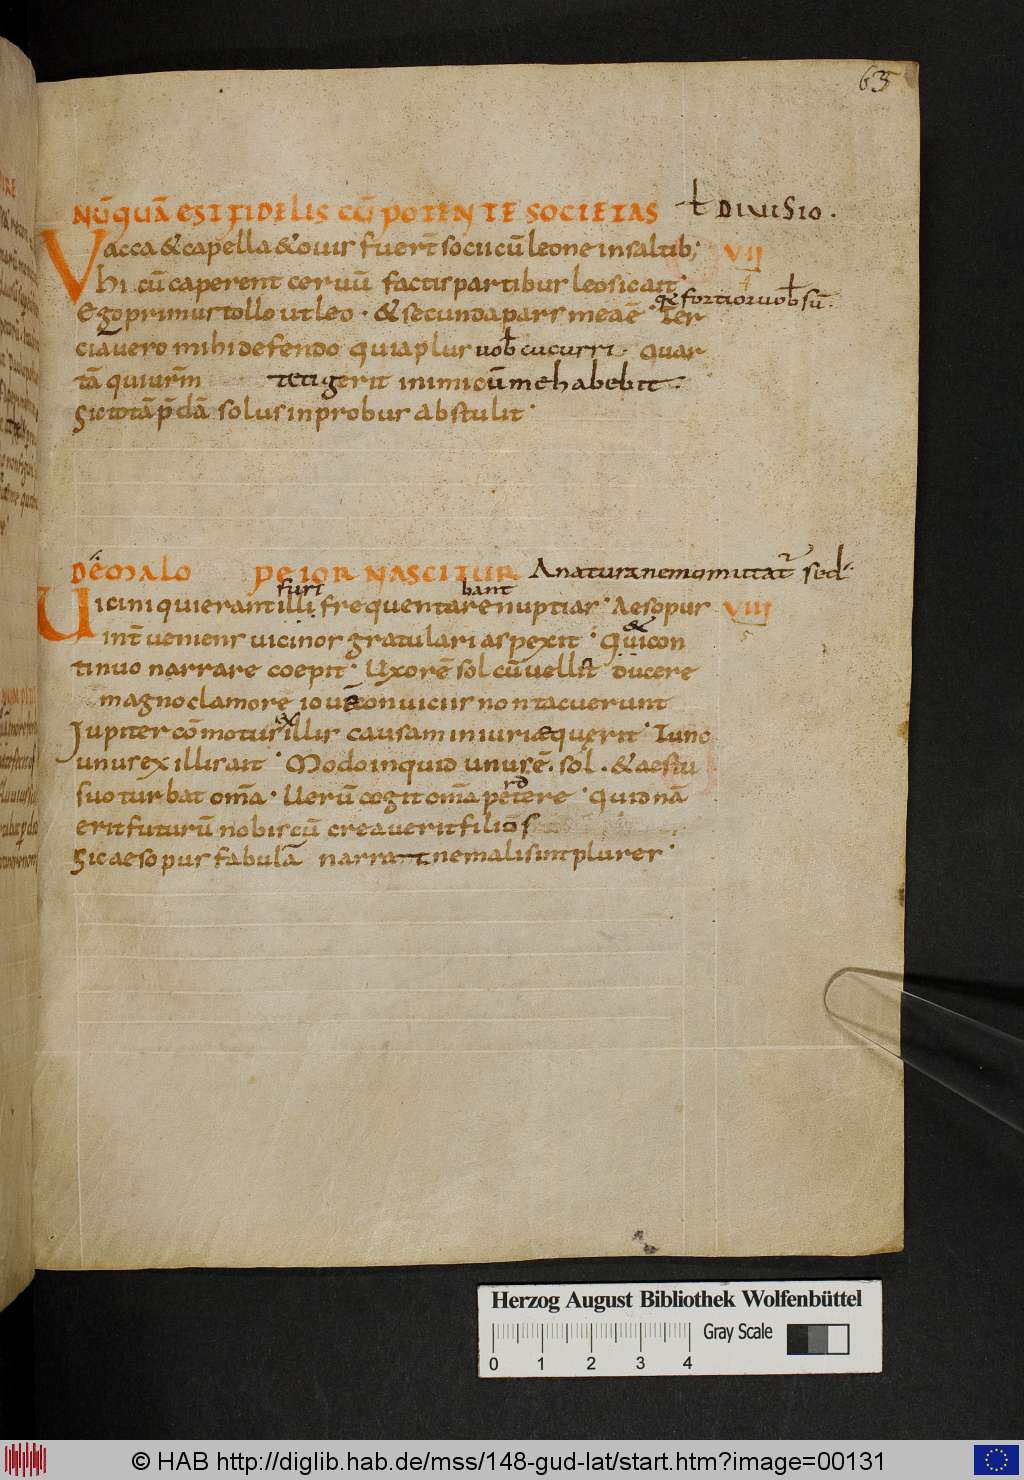 63
NŪQUĀ EST FIDELIS CŪ POTENTE SOCIETAS ł DIUISIO.
Vacca & capella & ouis fuer̄t socii cū leone in saltib;
VII
hi cū caperent ceruū factis partibus leo sic ait
qa fortior uob sū.
Ego primus tollo ut leo. & secunda pars mea ē. Ter
cia uero mihi defendo quia plus uob cucurri. Quar
tā qui ur̄m tetigerit inimicū me habebit.
Sic totā p̄dā solus inprobus abstulit
DE MALO PEIOR NASCITUR A natura nemo mutat᷑ sed
furi bant
Uicini qui erant illi frequentare nuptias. Aesopus
VIII
int̄ ueniens uicinos gratulari aspexit. Qui con
&
tinuo narrare coepit. Uxorē sol cū uell& ducere
magno clamore iouē conuiciis non tacuerunt
ex
Jupiter cōmotus illis causam iniuriae querit. Tunc
unus ex illis ait. Modo inquid unus ē. sol. & aestu
rd
suo turbat om̄a. Uerū cogit om̄a petere. Quid nā
erit futurū nobiscū creauerit filios
Sic aesopus fabulā narrat ne mali sint plures
Herzog August Bibliothek Wolfenbüttel
Gray Scale
0 1 2 3 4
© HAB http://diglib.hab.de/mss/148-gud-lat/start.htm?image=00131